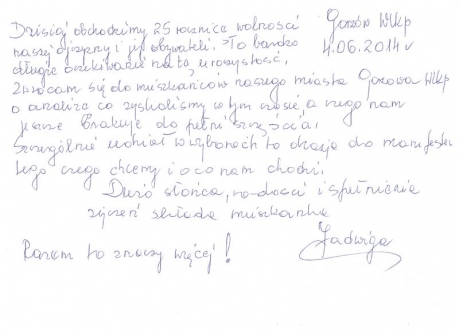 Gorzów Wlkp
4.06.2014 r
Dzisiaj obchodzimy 25 rocznicę wolności
naszej ojczyzny i jej obywateli. To bardzo
długie oczekiwanie na tę uroczystość.
Zwracam się do mieszkańców naszego miasta Gorzowa Wlkp
o analizę co zyskaliśmy w tym czasie, a czego nam
jeszcze brakuje do pełni szczęścia.
Szczególnie udział w wyborach to okazja do manifestu
tego czego chcemy i o co nam chodzi.
Dużo słońca, radości i spełnienia
życzeń składa mieszkanka
Jadwiga
Razem to znaczy więcej!